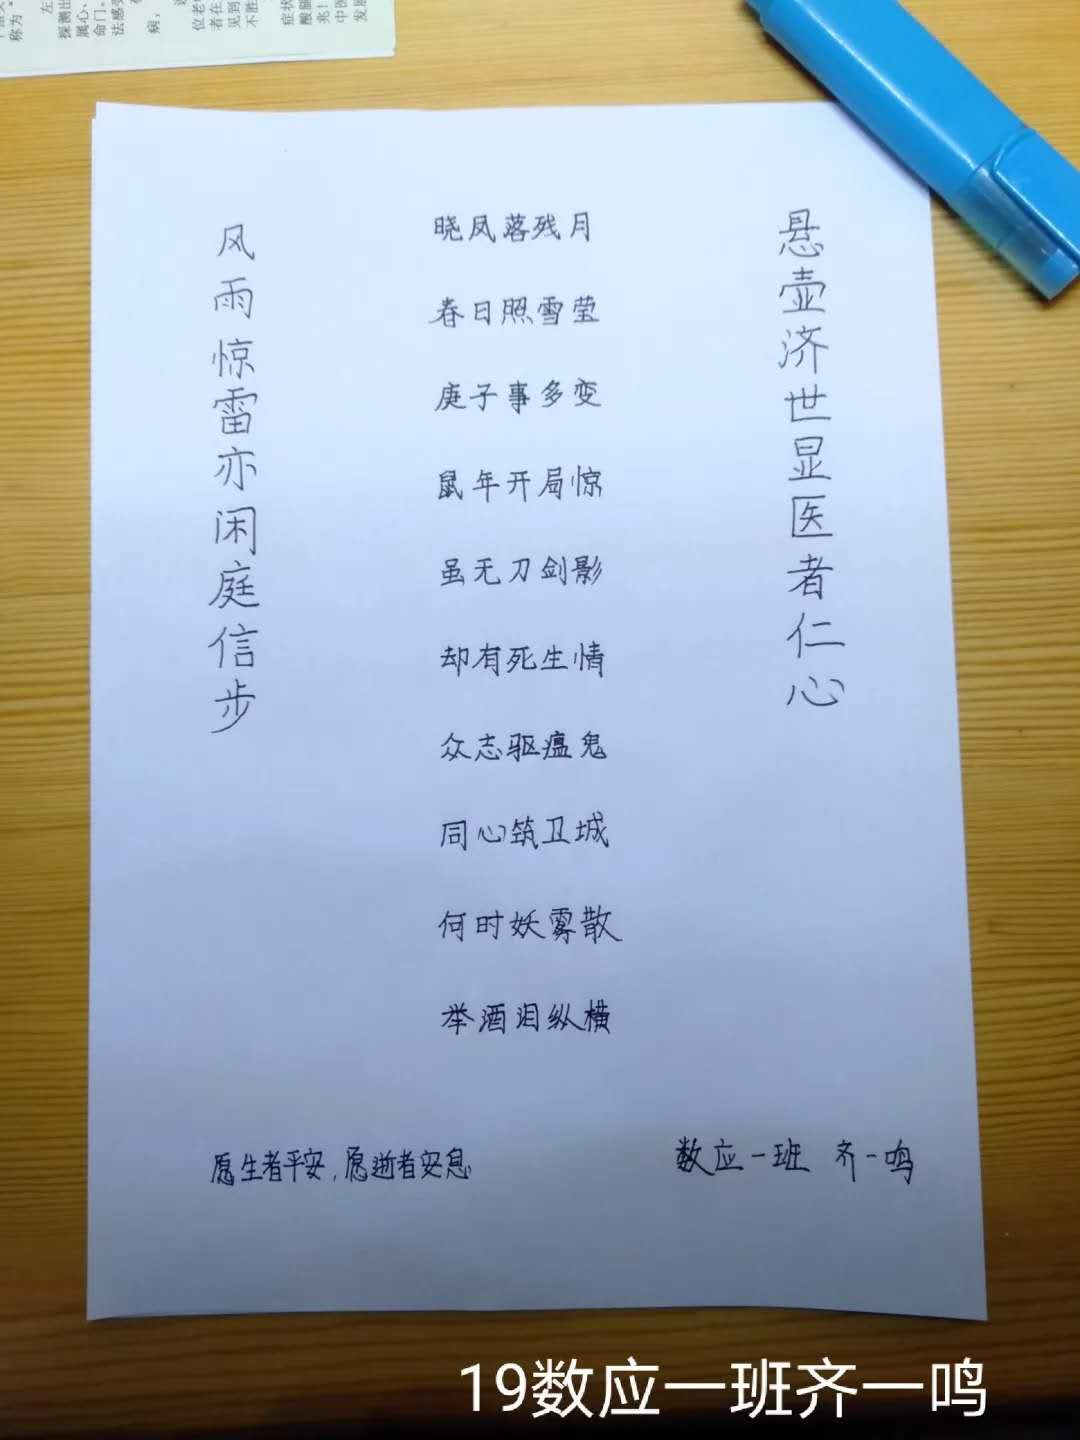 悬壶济世显医者仁心
晓风落残月
春日照雪莹
庚子事多变
鼠年开局惊
虽无刀剑影
却有死生情
众志驱瘟鬼
同心筑卫城
何时妖雾散
举酒泪纵横
风雨惊雷亦闲庭信步
愿生者平安，愿逝者安息
数应一班 齐一鸣
19数应一班齐一鸣